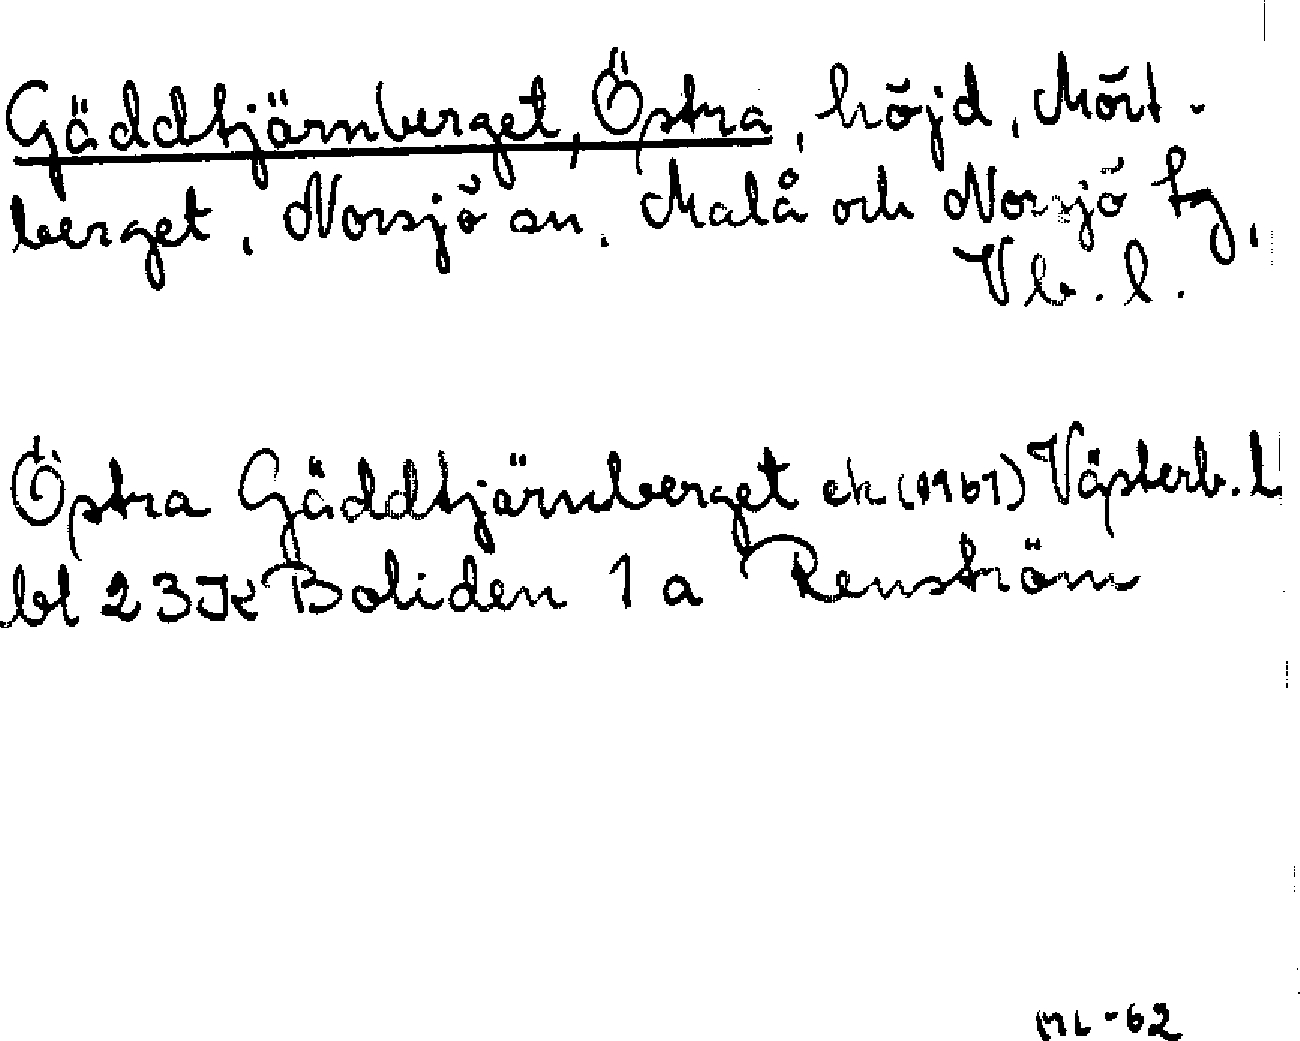 Gäddtjärnberget, Östra, höjd, Mört-
berget, Norsjö sn. Malå och Norsjö tg,
Vb. l.
Östra Gäddtjärnberget ek (1961) Västerb. l
bl 23 JK Boliden 1 a Renström
ML-62